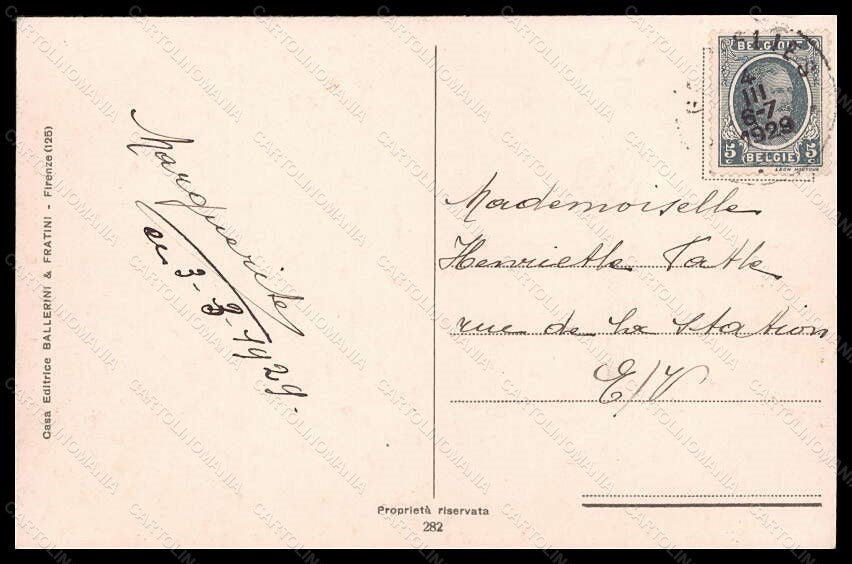 Casa Editrice BALLERINI & FRATINI - Firenze (125)
Marguerite
3-3-1929.
Proprietà riservata
282
BELGIQUE
5c 5c
BELGIË
4
III
6-7
1929
Mademoiselle
Henriette
rue de la Station
E/V
CARTOLINOMANIA